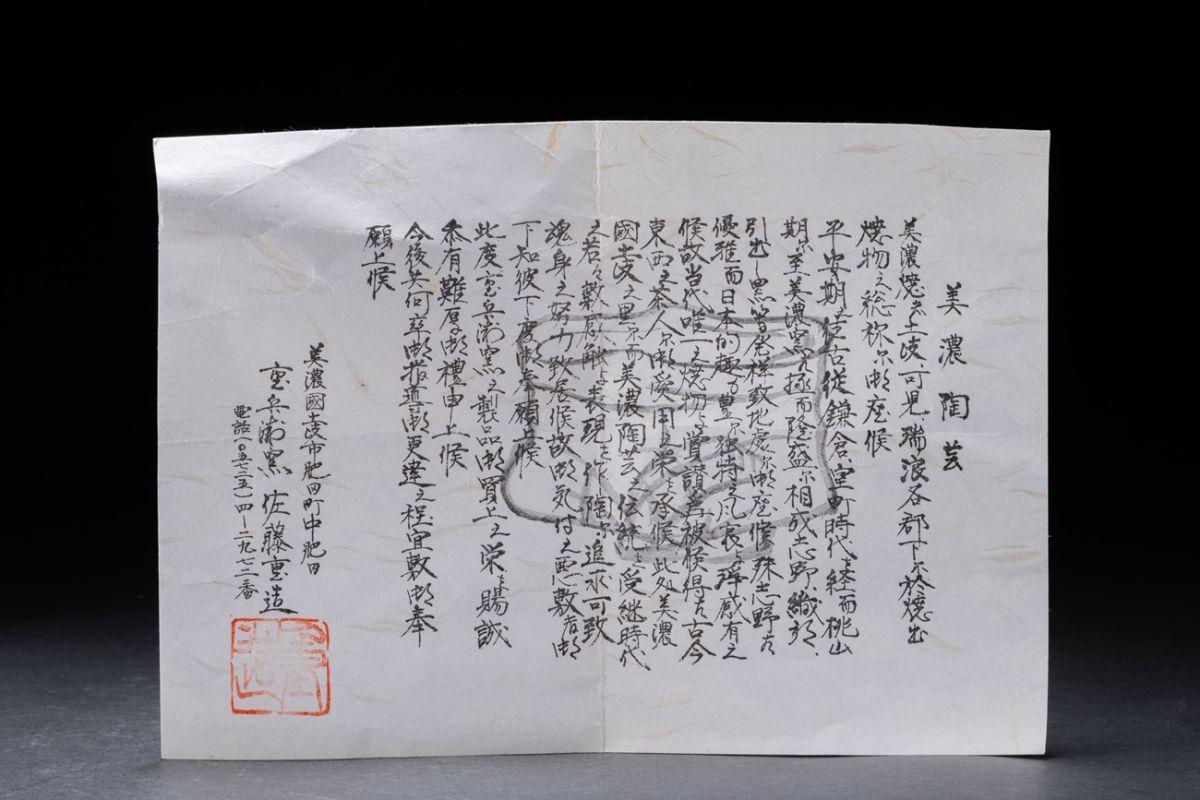 美濃陶芸
美濃焼者土岐、可見、瑞浪各郡下ニ於焼出
焼物之総称ニ御座候
平安期之往古従鎌倉室町時代を経而桃山
期ニ至美濃窯者極而隆盛ニ相成志野、織部、
引出し黒等発祥致地処ニ御座候殊志野者
優雅而日本的趣力豊ニ独特之風哀を醸感有之
候故当代唯一之焼物与賞讃為被候得者古今
東西之茶人ニ御愛用之栄を承候此処美濃
國土岐之里ニ而美濃陶芸之伝統を受継時代
之若々敷息触与表現を作陶ニ追求可致
魂身之努力致居候故御気付之悪敷者御
下知被下度御奉願上候
此度重兵衛窯之製品御買上之栄を賜誠
忝有難厚御禮申上候
今後共何卒御指導御更達之程宜敷御奉
願上候
美濃國土岐市肥田町中肥田
重兵衛窯 佐藤重造
電話(〇五七二五)四-二九七二番
重造